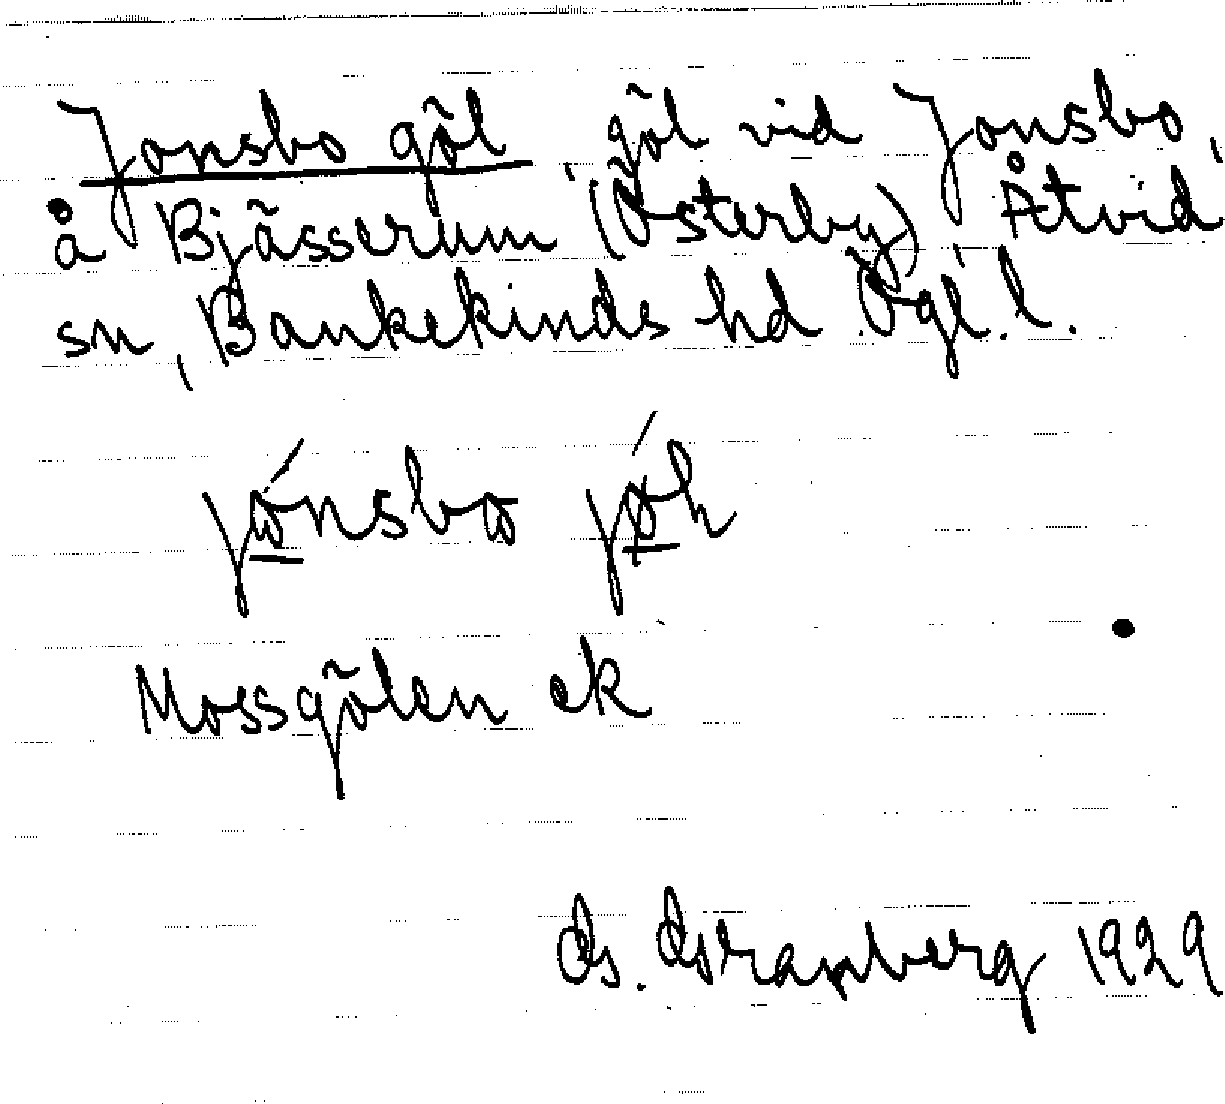 Jonsbo göl, göl vid Jonsbo,
å Bjässerum (Österby) Åtvid
sn, Bankekinds hd Ögl. l.
jónsbo
Mossgölen ek
G. Granberg 1929